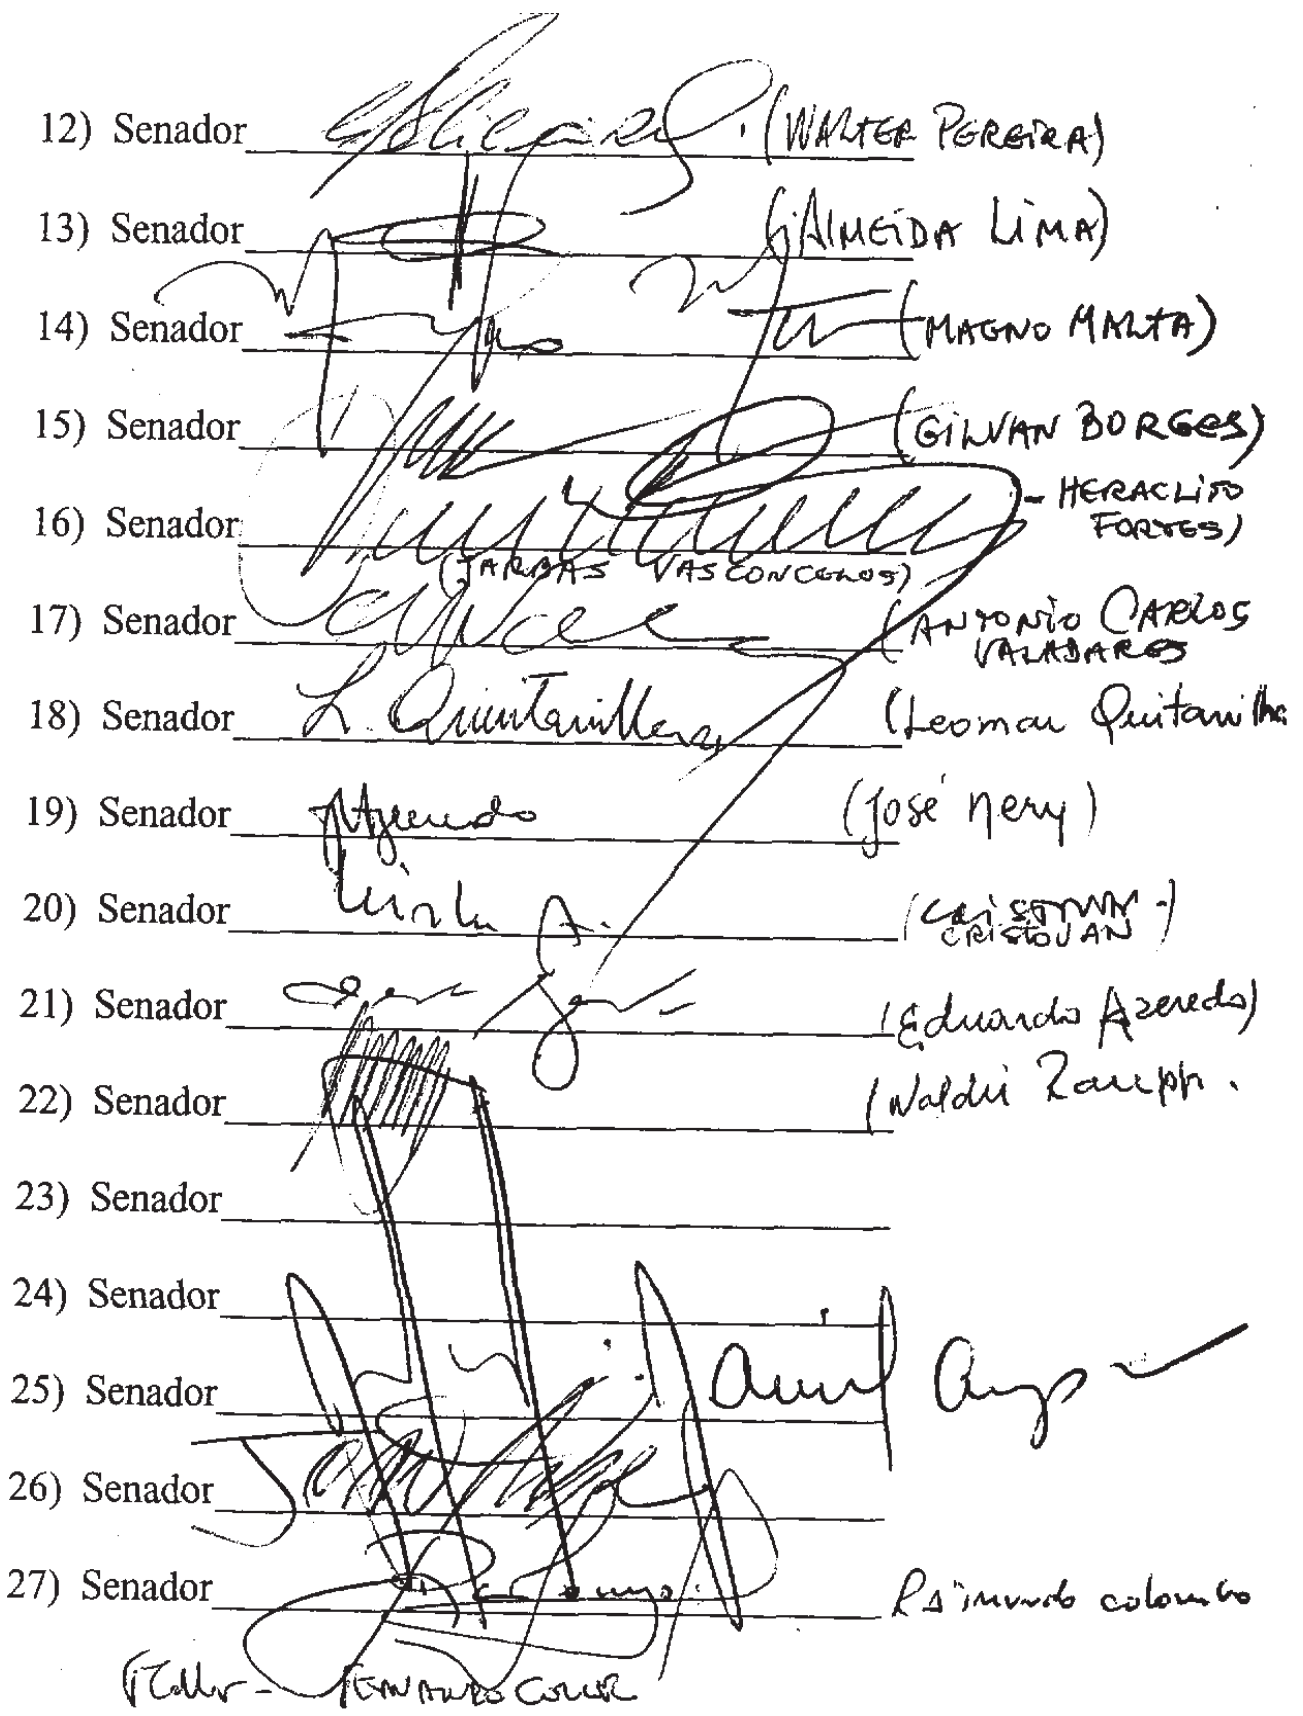 12) Senador (WALTER PEREIRA)
13) Senador (ALMEIDA LIMA)
14) Senador (MAGNO MALTA)
15) Senador (GILVAN BORGES)
16) Senador - HERACLITO
FORTES)
(JARBAS VASCONCELOS)
17) Senador (ANTONIO CARLOS
VALADARES
18) Senador L. Quintanilha (Leomar Quitanilha
19) Senador (José Nery)
20) Senador (CRISTOVAM)
CRISTOVAN
21) Senador (Eduardo Azeredo)
22) Senador (Valdir Raupp.
23) Senador
24) Senador
25) Senador
26) Senador
27) Senador Raimundo colombo
FCollor - FERNANDO COLLOR